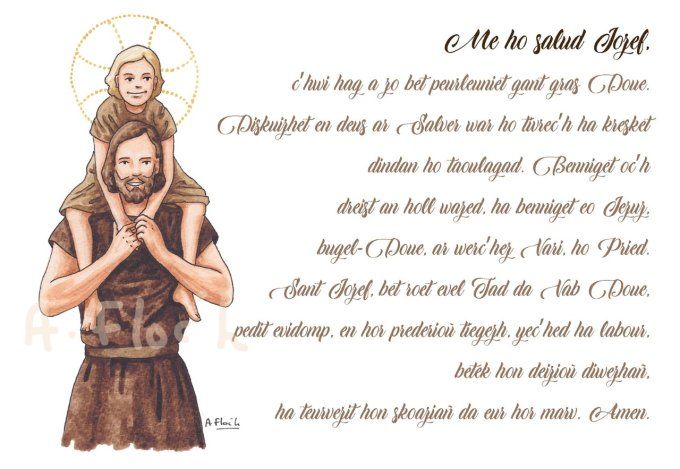 Me ho salud Jozef,
c'hwi hag a zo bet peurleuniet gant gras Doue.
Diskuizhet en deus ar Salver war ho tivrec'h ha kresket
dindan ho taoulagad. Benniget oc'h
dreist an holl wazed, ha benniget eo Jezuz,
bugel-Doue, ar werc'hez Vari, ho Pried.
Sant Jozef, bet roet evel Tad da Vab Doue,
pedit evidomp, en hor prederioù tiegezh, yec'hed ha labour,
betek hon deizioù diwezhañ,
ha teurvezit hon skoaziañ da eur hor marv. Amen.
A. Floc'h
A Floc'h